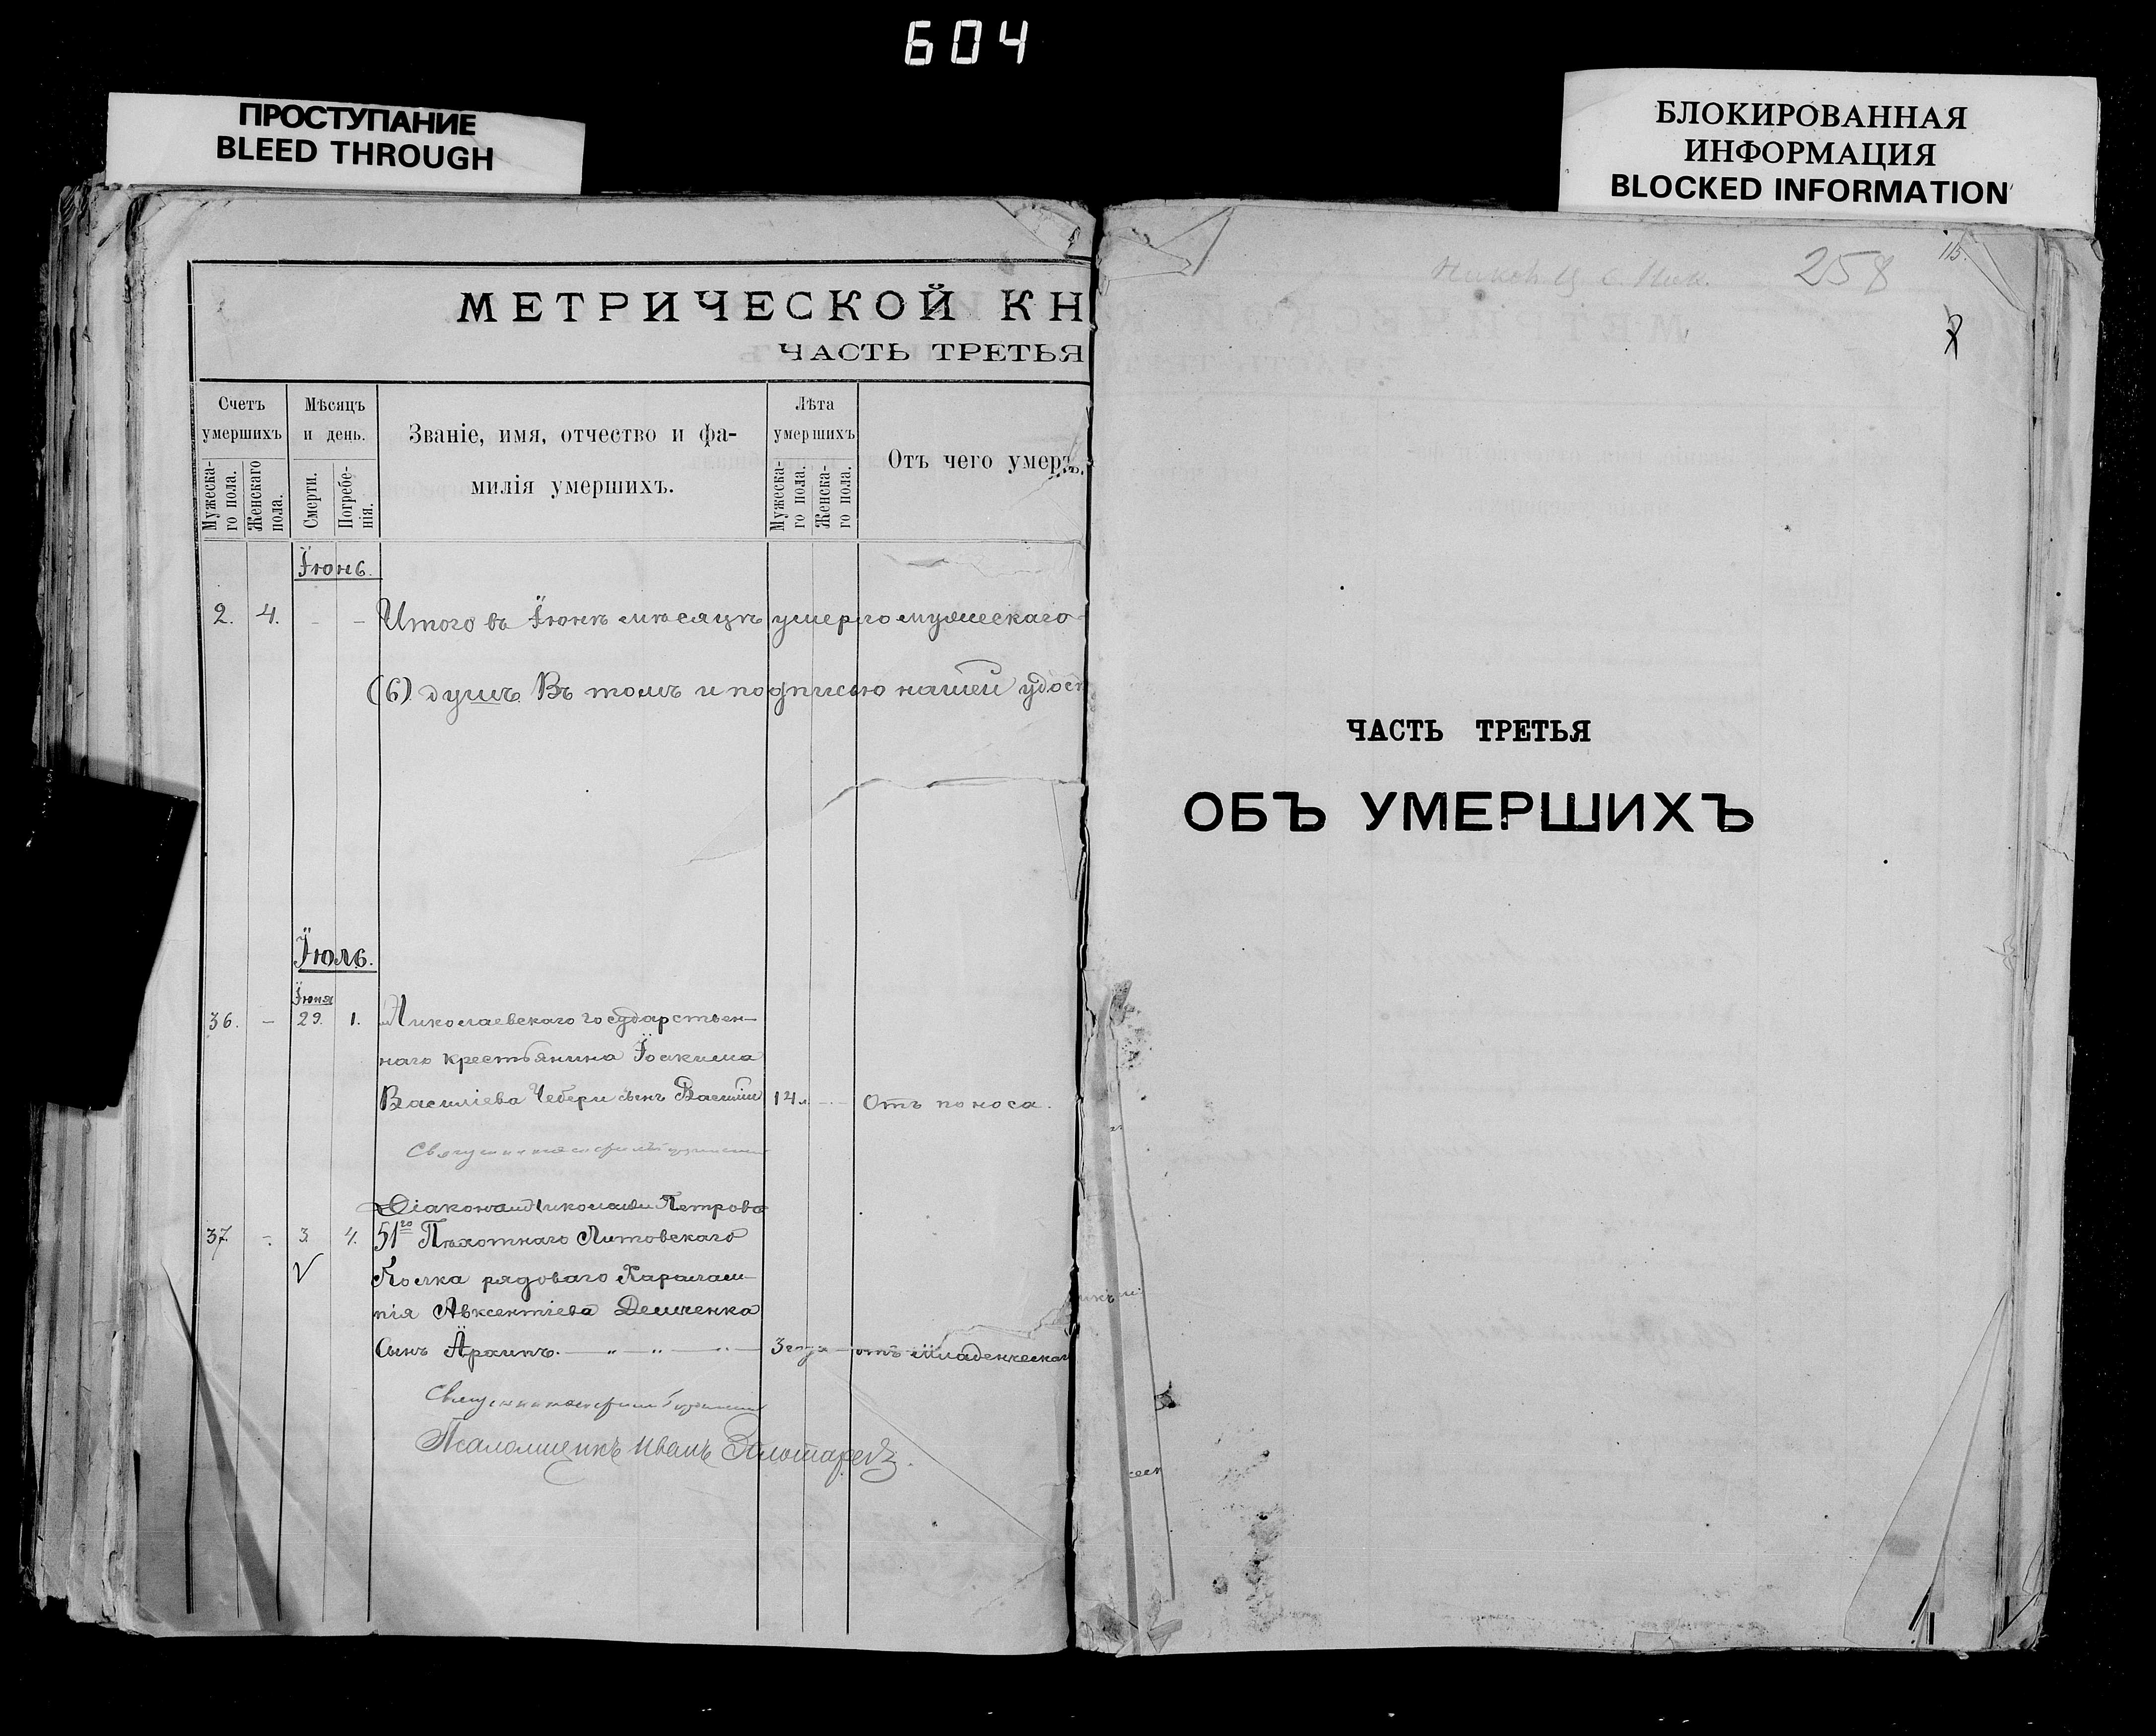 604
ПРОСТУПАНИЕ
BLEED THROUGH
БЛОКИРОВАННАЯ
ИНФОРМАЦИЯ
BLOCKED INFORMATION
МЕТРИЧЕСКОЙ КН
ЧАСТЬ ТРЕТЬЯ
Счетъ умершихъ
Мѣсяцъ и день.
Званіе, имя, отчество и фа-
милія умершихъ.
Лѣта умершихъ
Отъ чего умеръ.
Мужеска-
го пола.
Женскаго
пола.
Смерти.
Погребе-
нія.
Мужеска-
го пола.
Женска-
го пола.
Іюнь.
2. 4. Итого въ Іюнѣ мѣсяцѣ умерло мужескаго
(6) душъ. Въ томъ и подписью нашей удост
Іюль.
Іюня
36. – 29. 1. Николаевскаго государствен-
наго крестьянина Іоакима
Василіева Чебери сынъ Василій 14 – Отъ поноса.
Діаконъ Николай Петровъ
37. – 3. 4. 51го Пѣхотнаго Литовскаго
Полка рядоваго Харалам-
пія Авксентіева Демченка
сынъ – 3 отъ младенческаг
Псаломщикъ Иванъ Золотаревъ.
258
115.
ЧАСТЬ ТРЕТЬЯ
ОБЪ УМЕРШИХЪ